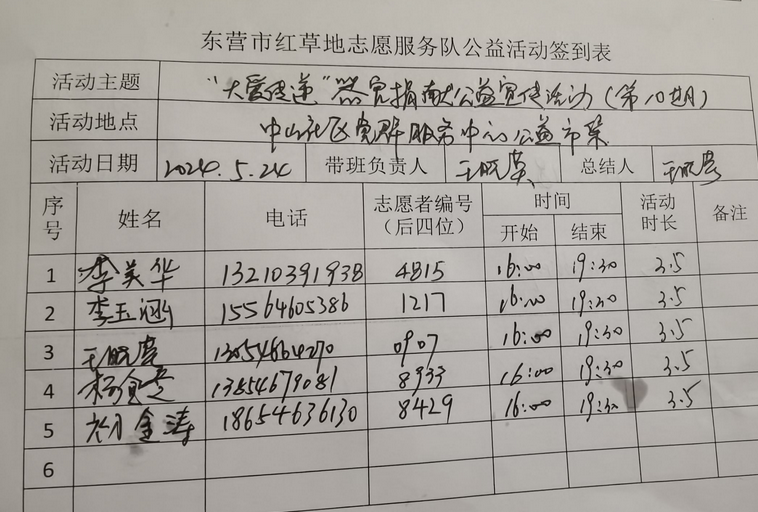 东营市红草地志愿服务队公益活动签到表
活动主题 “大爱传递”器官捐献公益宣传活动(第10期)
活动地点 中山社区党群服务中心公益市集
活动日期 2024.5.24 带班负责人 总结人
序号 姓名 电话 志愿者编号(后四位) 时间 活动时长 备注
开始 结束
1 李美华 13210391938 4815 16:00 19:30 3.5
2 李玉涵 15564605386 1217 16:00 19:30 3.5
3 0907 16:00 19:30 3.5
4 13854679081 8933 16:00 19:30 3.5
5 金涛 18654636130 8429 16:00 19:30 3.5
6